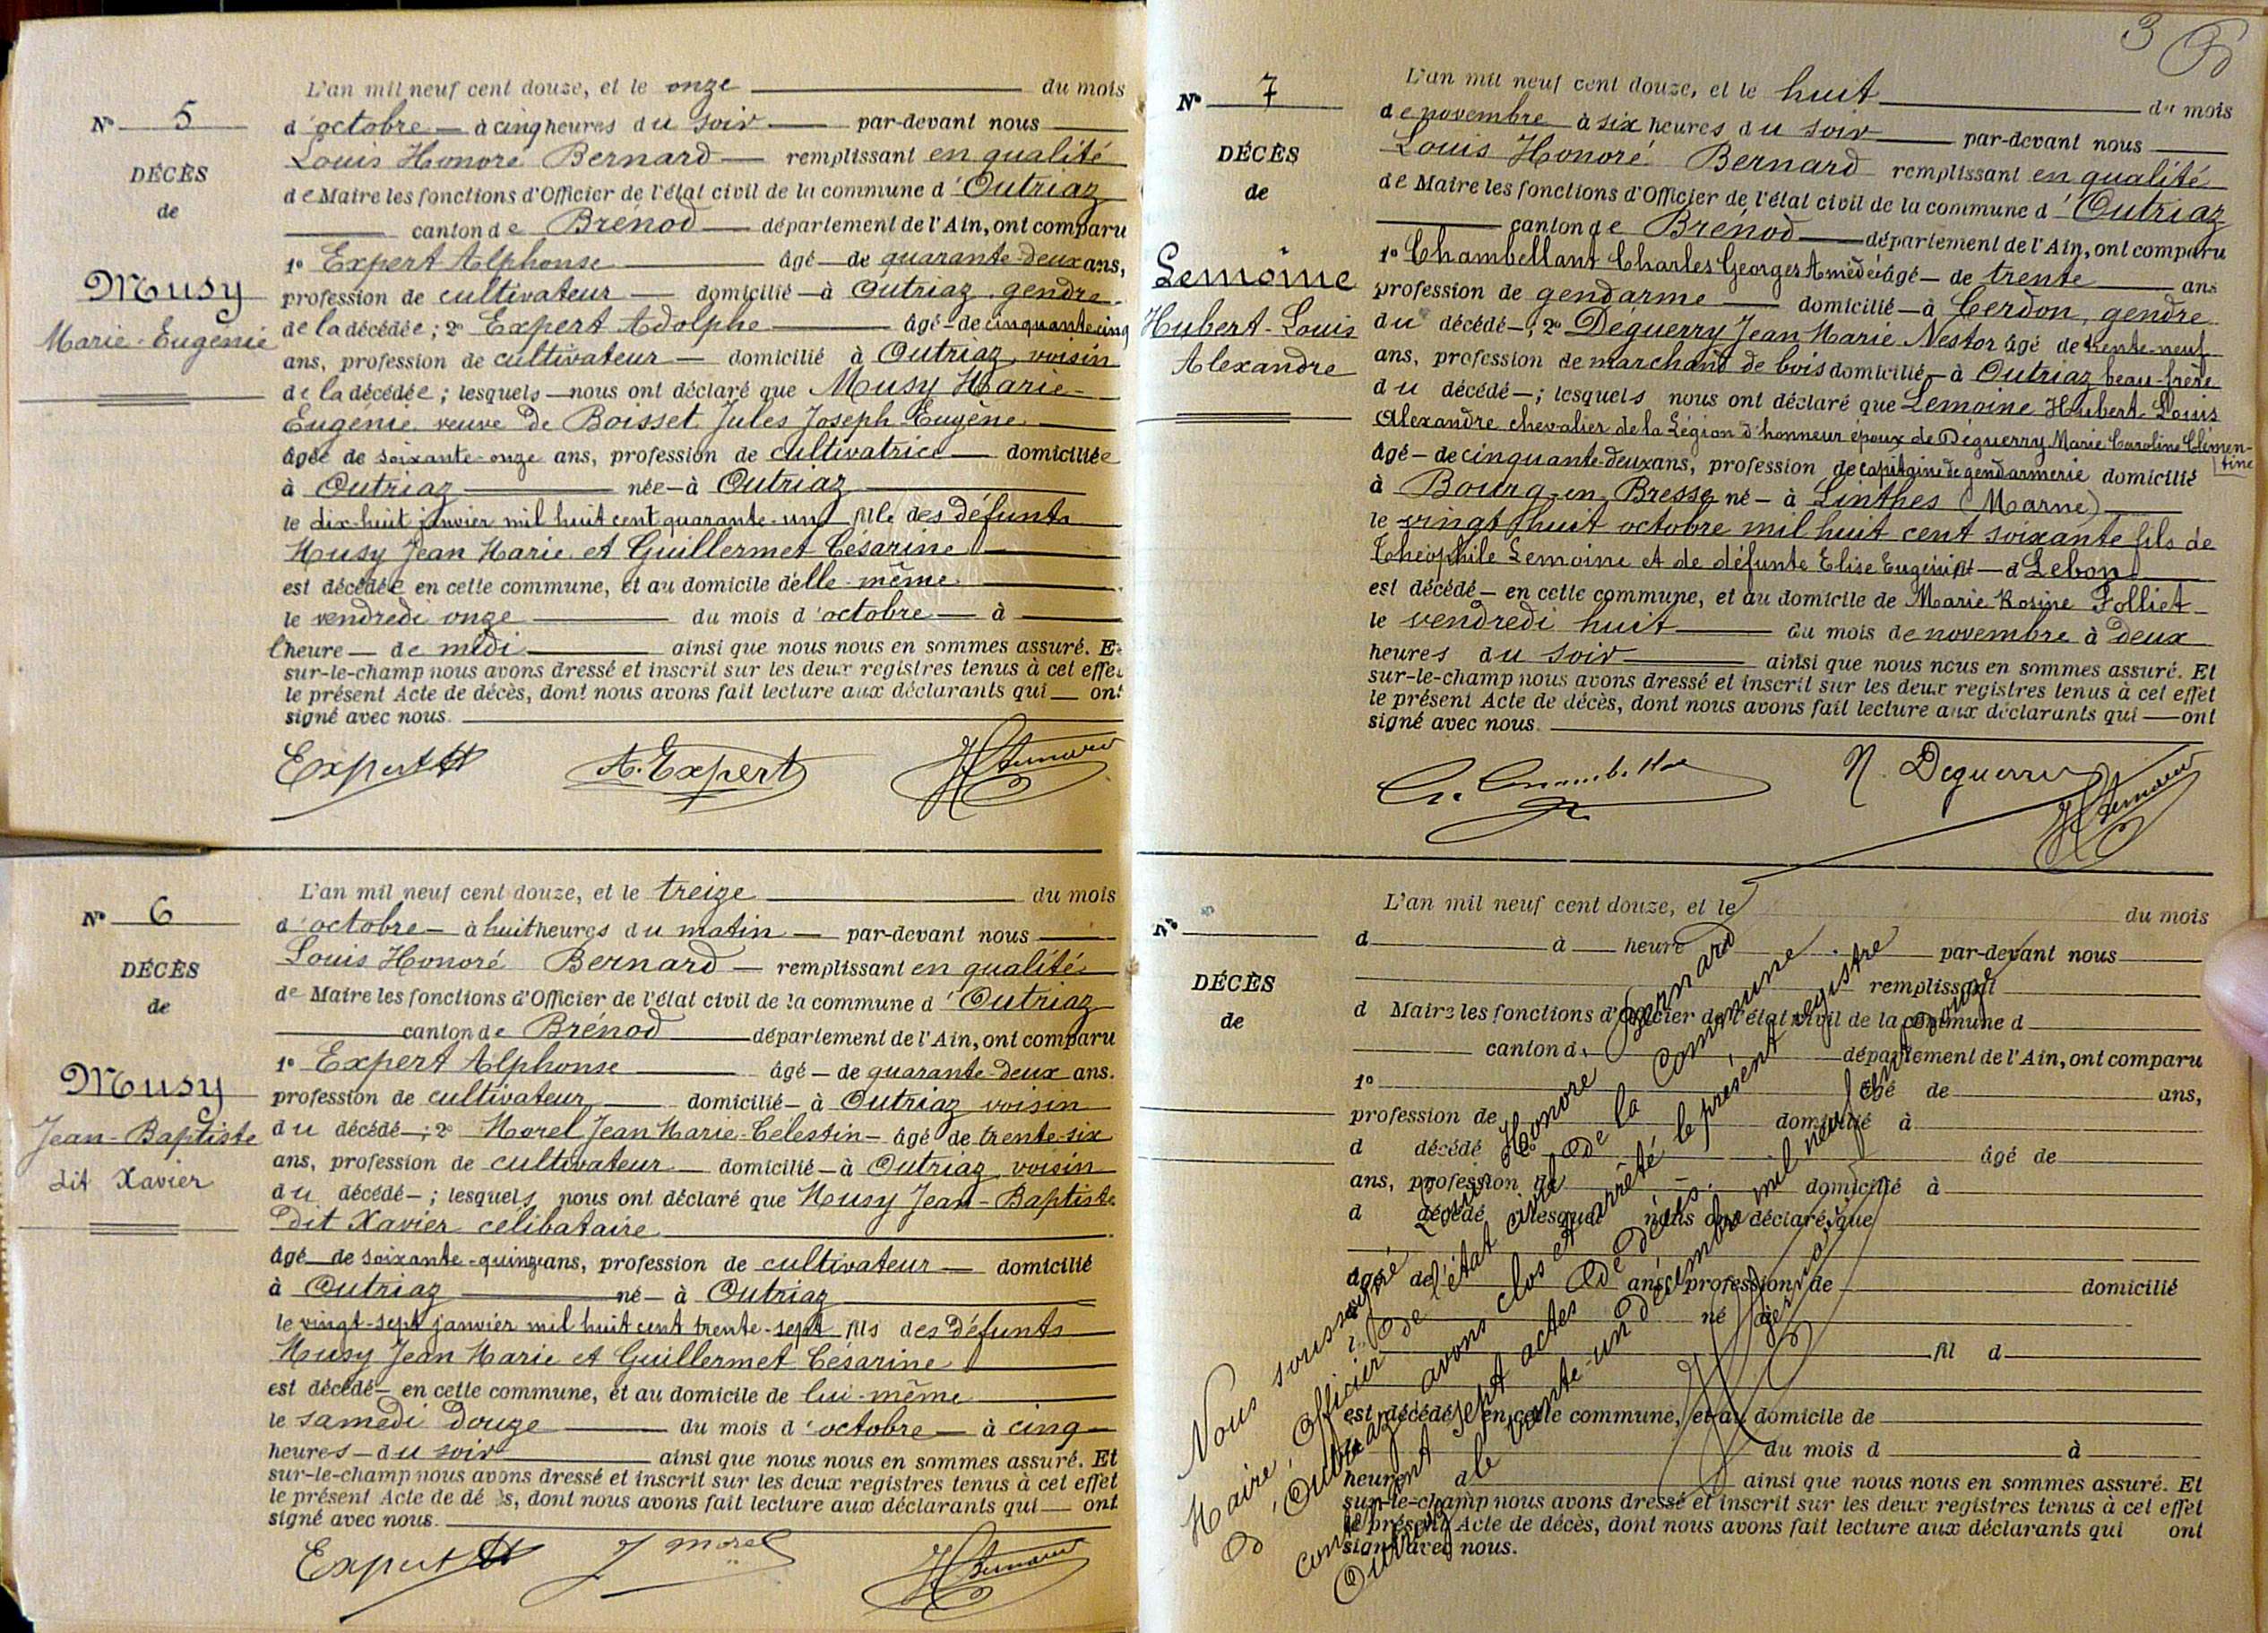 L'an mil neuf cent douze, et le onze du mois
N° 5
d'octobre à cinq heures du soir par-devant nous
Louis Honoré Bernard remplissant en qualité
DÉCÈS
de Maire les fonctions d'Officier de l'état civil de la commune d'Outriaz
de
canton de Brénod département de l'Ain, ont comparu
1° Expert Alphonse âgé de quarante-deux ans,
Musy
profession de cultivateur domicilié à Outriaz, gendre
Marie-Eugénie
de la décédée; 2° Expert Adolphe âgé de cinquante cinq
ans, profession de cultivateur domicilié à Outriaz, voisin
de la décédée; lesquels nous ont déclaré que Musy Marie-
Eugénie veuve de Boisset Jules Joseph Eugène
âgée de soixante-onze ans, profession de cultivatrice domiciliée
à Outriaz née à Outriaz
le dix-huit janvier mil huit cent quarante-un fille des défunts
Musy Jean Marie et Guillermet Césarine
est décédée en cette commune, et au domicile d'elle-même
le vendredi onze du mois d'octobre à
l'heure de midi ainsi que nous nous en sommes assuré. Et
sur-le-champ nous avons dressé et inscrit sur les deux registres tenus à cet effet
le présent Acte de décès, dont nous avons fait lecture aux déclarants qui ont
signé avec nous.
Expert A. Expert H Bernard
L'an mil neuf cent douze, et le treize du mois
N° 6
d'octobre à huit heures du matin par-devant nous
Louis Honoré Bernard remplissant en qualité
DÉCÈS
de Maire les fonctions d'Officier de l'état civil de la commune d'Outriaz
de
canton de Brénod département de l'Ain, ont comparu
1° Expert Alphonse âgé de quarante-deux ans.
Musy
profession de cultivateur domicilié à Outriaz voisin
Jean-Baptiste
du décédé; 2° Morel Jean Marie-Celestin âgé de trente-six
ans, profession de cultivateur domicilié à Outriaz, voisin
dit Xavier
du décédé; lesquels nous ont déclaré que Musy Jean-Baptiste
dit Xavier célibataire
âgé de soixante-quinze ans, profession de cultivateur domicilié
à Outriaz né à Outriaz
le vingt-sept janvier mil huit cent trente-sept fils des défunts
Musy Jean Marie et Guillermet Césarine
est décédé en cette commune, et au domicile de lui-même
le samedi douze du mois d'octobre à cinq
heures du soir ainsi que nous nous en sommes assuré. Et
sur-le-champ nous avons dressé et inscrit sur les deux registres tenus à cet effet
le présent Acte de décès, dont nous avons fait lecture aux déclarants qui ont
signé avec nous.
Expert J Morel H Bernard
3
L'an mil neuf cent douze, et le huit du mois
N° 7
de novembre à six heures du soir par-devant nous
Louis Honoré Bernard remplissant en qualité
DÉCÈS
de Maire les fonctions d'Officier de l'état civil de la commune d'Outriaz
de
canton de Brénod département de l'Ain, ont comparu
1° Chambellant Charles Georges Amédée âgé de trente ans
Lemoine
profession de gendarme domicilié à Cerdon, gendre
Hubert-Louis
du décédé; 2° Déguerry Jean Marie Nestor âgé de trente-neuf
Alexandre
ans, profession de marchand de bois domicilié à Outriaz beau-frère
du décédé; lesquels nous ont déclaré que Lemoine Hubert-Louis
Alexandre chevalier de la Légion d'honneur époux de Déguerry Marie Caroline Clémen-
tine
âgé de cinquante-deux ans, profession de capitaine de gendarmerie domicilié
à Bourg-en-Bresse né à Linthes (Marne)
le vingt huit octobre mil huit cent soixante fils de
Théophile Lemoine et de défunte Elise Eugénie Lebon
est décédé en cette commune, et au domicile de Marie Rosine Folliet
le vendredi huit du mois de novembre à deux
heures du soir ainsi que nous nous en sommes assuré. Et
sur-le-champ nous avons dressé et inscrit sur les deux registres tenus à cet effet
le présent Acte de décès, dont nous avons fait lecture aux déclarants qui ont
signé avec nous.
N. Deguerry H Bernard
L'an mil neuf cent douze, et le du mois
N°
d à heure par-devant nous
remplissant
DÉCÈS
d Maire les fonctions d'Officier de l'état civil de la commune d
de
canton d département de l'Ain, ont comparu
1° âgé de ans,
profession de domicilié à
d décédé âgé de
ans, profession de domicilié à
d décédé lesquel nous ont déclaré que
âgé de ans, profession de domicilié
né à
fil d
est décédé en cette commune, et au domicile de
du mois d à
heure d ainsi que nous nous en sommes assuré. Et
sur-le-champ nous avons dressé et inscrit sur les deux registres tenus à cet effet
le présent Acte de décès, dont nous avons fait lecture aux déclarants qui ont
signé avec nous.
Nous soussigné Louis Honoré Bernard
Maire, Officier de l'état civil de la commune
d'Outriaz, avons clos et arrêté le présent registre
contenant sept actes de décès.
Outriaz le trente-un décembre mil neuf cent douze
H Bernard